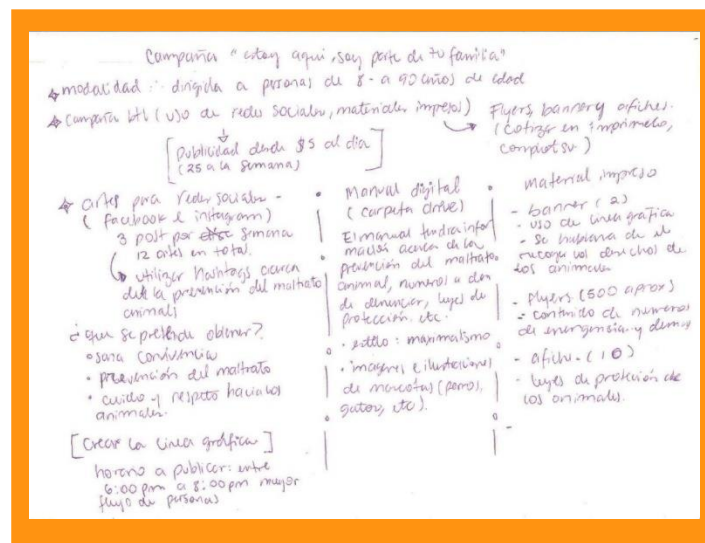 Campaña "estoy aqui, soy parte de tu familia"
modalidad : dirigida a personas de 8 - a 90 años de edad
campaña btl (uso de redes sociales, materiales impresos)
Flyers, banner y afiches.
(cotizar en imprimelo,
[Publicidad desde $5 al día
(25 a la semana)]
artes para redes sociales -
(facebook e instagram)
3 post por semana
12 artes en total.
utilizar Hashtags acerca
de la prevención del maltrato
animal
¿que se pretende obtener?
• sana convivencia
• prevención del maltrato
• cuido y respeto hacia los
animales.
[Crear la linea gráfica]
horario a publicar: entre
6:00 pm a 8:00 pm mayor
flujo de personas
Manual digital
(carpeta drive)
El manual tendra infor
mación acerca de la
prevención del maltrato
animal, numeros a don
de denunciar, leyes de
protección. etc.
• estilo : maximalismo
• imagenes e ilustraciones
de mascotas (perros,
gatos, etc).
material impreso
- banner (2)
- uso de linea grafica
- se hablara de el
los derechos de
los animales
- Flyers (500 aprox)
- contenido de numeros
de emergencia y demas
- afiches - (10)
- leyes de protección de
los animales.